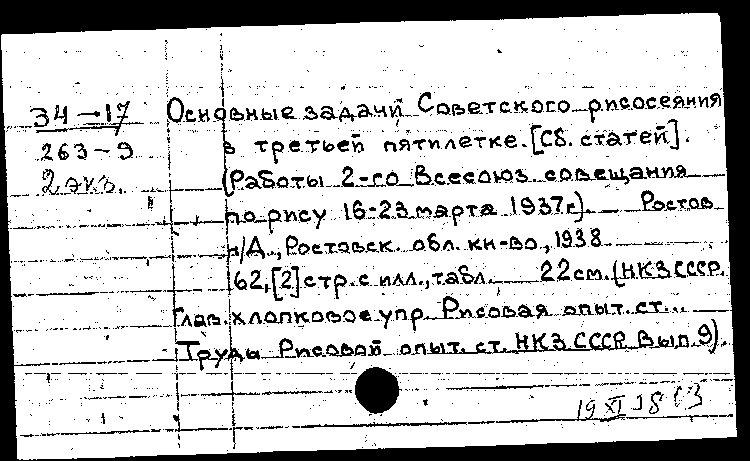 34-17
263-9
2 экз.
Основные задачи Советского рисосеяния
в третьей пятилетке. [Сб. статей].
(Работы 2-го Всесоюз. совещания
по рису 16-23 марта 1937г.). Ростов
н/Д., Ростовск. обл. кн-во, 1938
62,[2] стр. с илл., табл. 22см. (НКЗ СССР.
Глав. хлопковое упр. Рисовая опыт. ст...
Труды Рисовой опыт. ст. НКЗ СССР Вып. 9).
19 XI 38